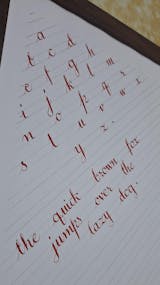 a
b c d
e f g h
i j k l m
n o p q r
s t u v w x
y z.
the quick brown fox
jumps over the
lazy dog.